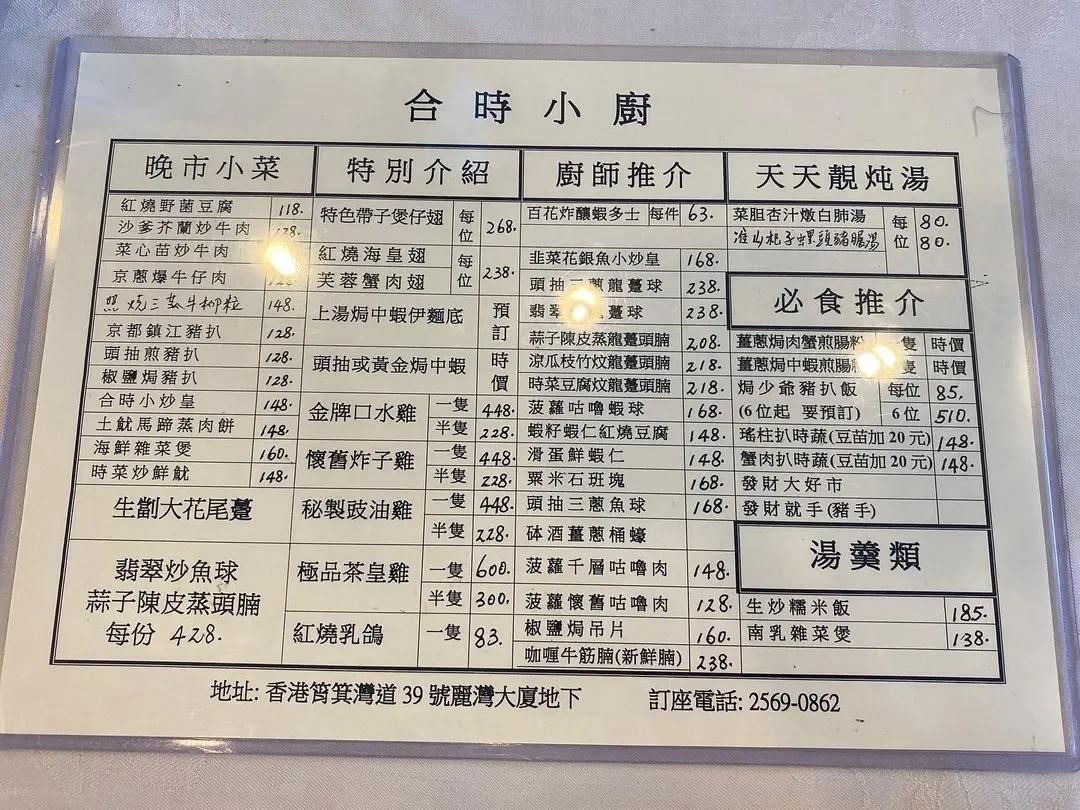 合時小廚
晚市小菜
紅燒野菌豆腐 118.
沙爹芥蘭炒牛肉 128.
菜心苗炒牛肉
京蔥爆牛仔肉 128.
照燒三 牛柳粒 148.
京都鎮江豬扒 128.
頭抽煎豬扒 128.
椒鹽焗豬扒 128.
合時小炒皇 148.
土魷馬蹄蒸肉餅 148.
海鮮雜菜煲 160.
時菜炒鮮魷 148.
生劏大花尾躉
翡翠炒魚球
蒜子陳皮蒸頭腩
每份 428.
特別介紹
特色帶子煲仔翅 每位 268.
紅燒海皇翅 每位 238.
芙蓉蟹肉翅
上湯焗中蝦伊麵底 預訂
頭抽或黃金焗中蝦 時價
金牌口水雞 一隻 448.
半隻 228.
懷舊炸子雞 一隻 448.
半隻 228.
秘製豉油雞 一隻 448.
半隻 228.
極品茶皇雞 一隻 600.
半隻 300.
紅燒乳鴿 一隻 83.
廚師推介
百花炸釀蝦多士 每件 63.
韭菜花銀魚小炒皇 168.
頭抽三蔥龍躉球 238.
翡翠 躉球 238.
蒜子陳皮蒸龍躉頭腩 208.
涼瓜枝竹炆龍躉頭腩 218.
時菜豆腐炆龍躉頭腩 218.
菠蘿咕嚕蝦球 168.
蝦籽蝦仁紅燒豆腐 148.
滑蛋鮮蝦仁 148.
粟米石班塊 168.
頭抽三蔥魚球 168.
砵酒薑蔥桶蠔
菠蘿千層咕嚕肉 148.
菠蘿懷舊咕嚕肉 128.
椒鹽焗吊片 160.
咖喱牛筋腩(新鮮腩) 238.
天天靚炖湯
菜胆杏汁燉白肺湯 每位 80.
淮山杞子螺頭豬𦟌湯 80.
必食推介
薑蔥焗肉蟹煎腸粉 隻 時價
薑蔥焗中蝦煎腸粉 時價
焗少爺豬扒飯 每位 85.
(6位起 要預訂) 6位 510.
瑤柱扒時蔬(豆苗加20元) 148.
蟹肉扒時蔬(豆苗加20元) 148.
發財大好市
發財就手(豬手)
湯羹類
生炒糯米飯 185.
南乳雜菜煲 138.
地址: 香港筲箕灣道39號麗灣大廈地下 訂座電話: 2569-0862